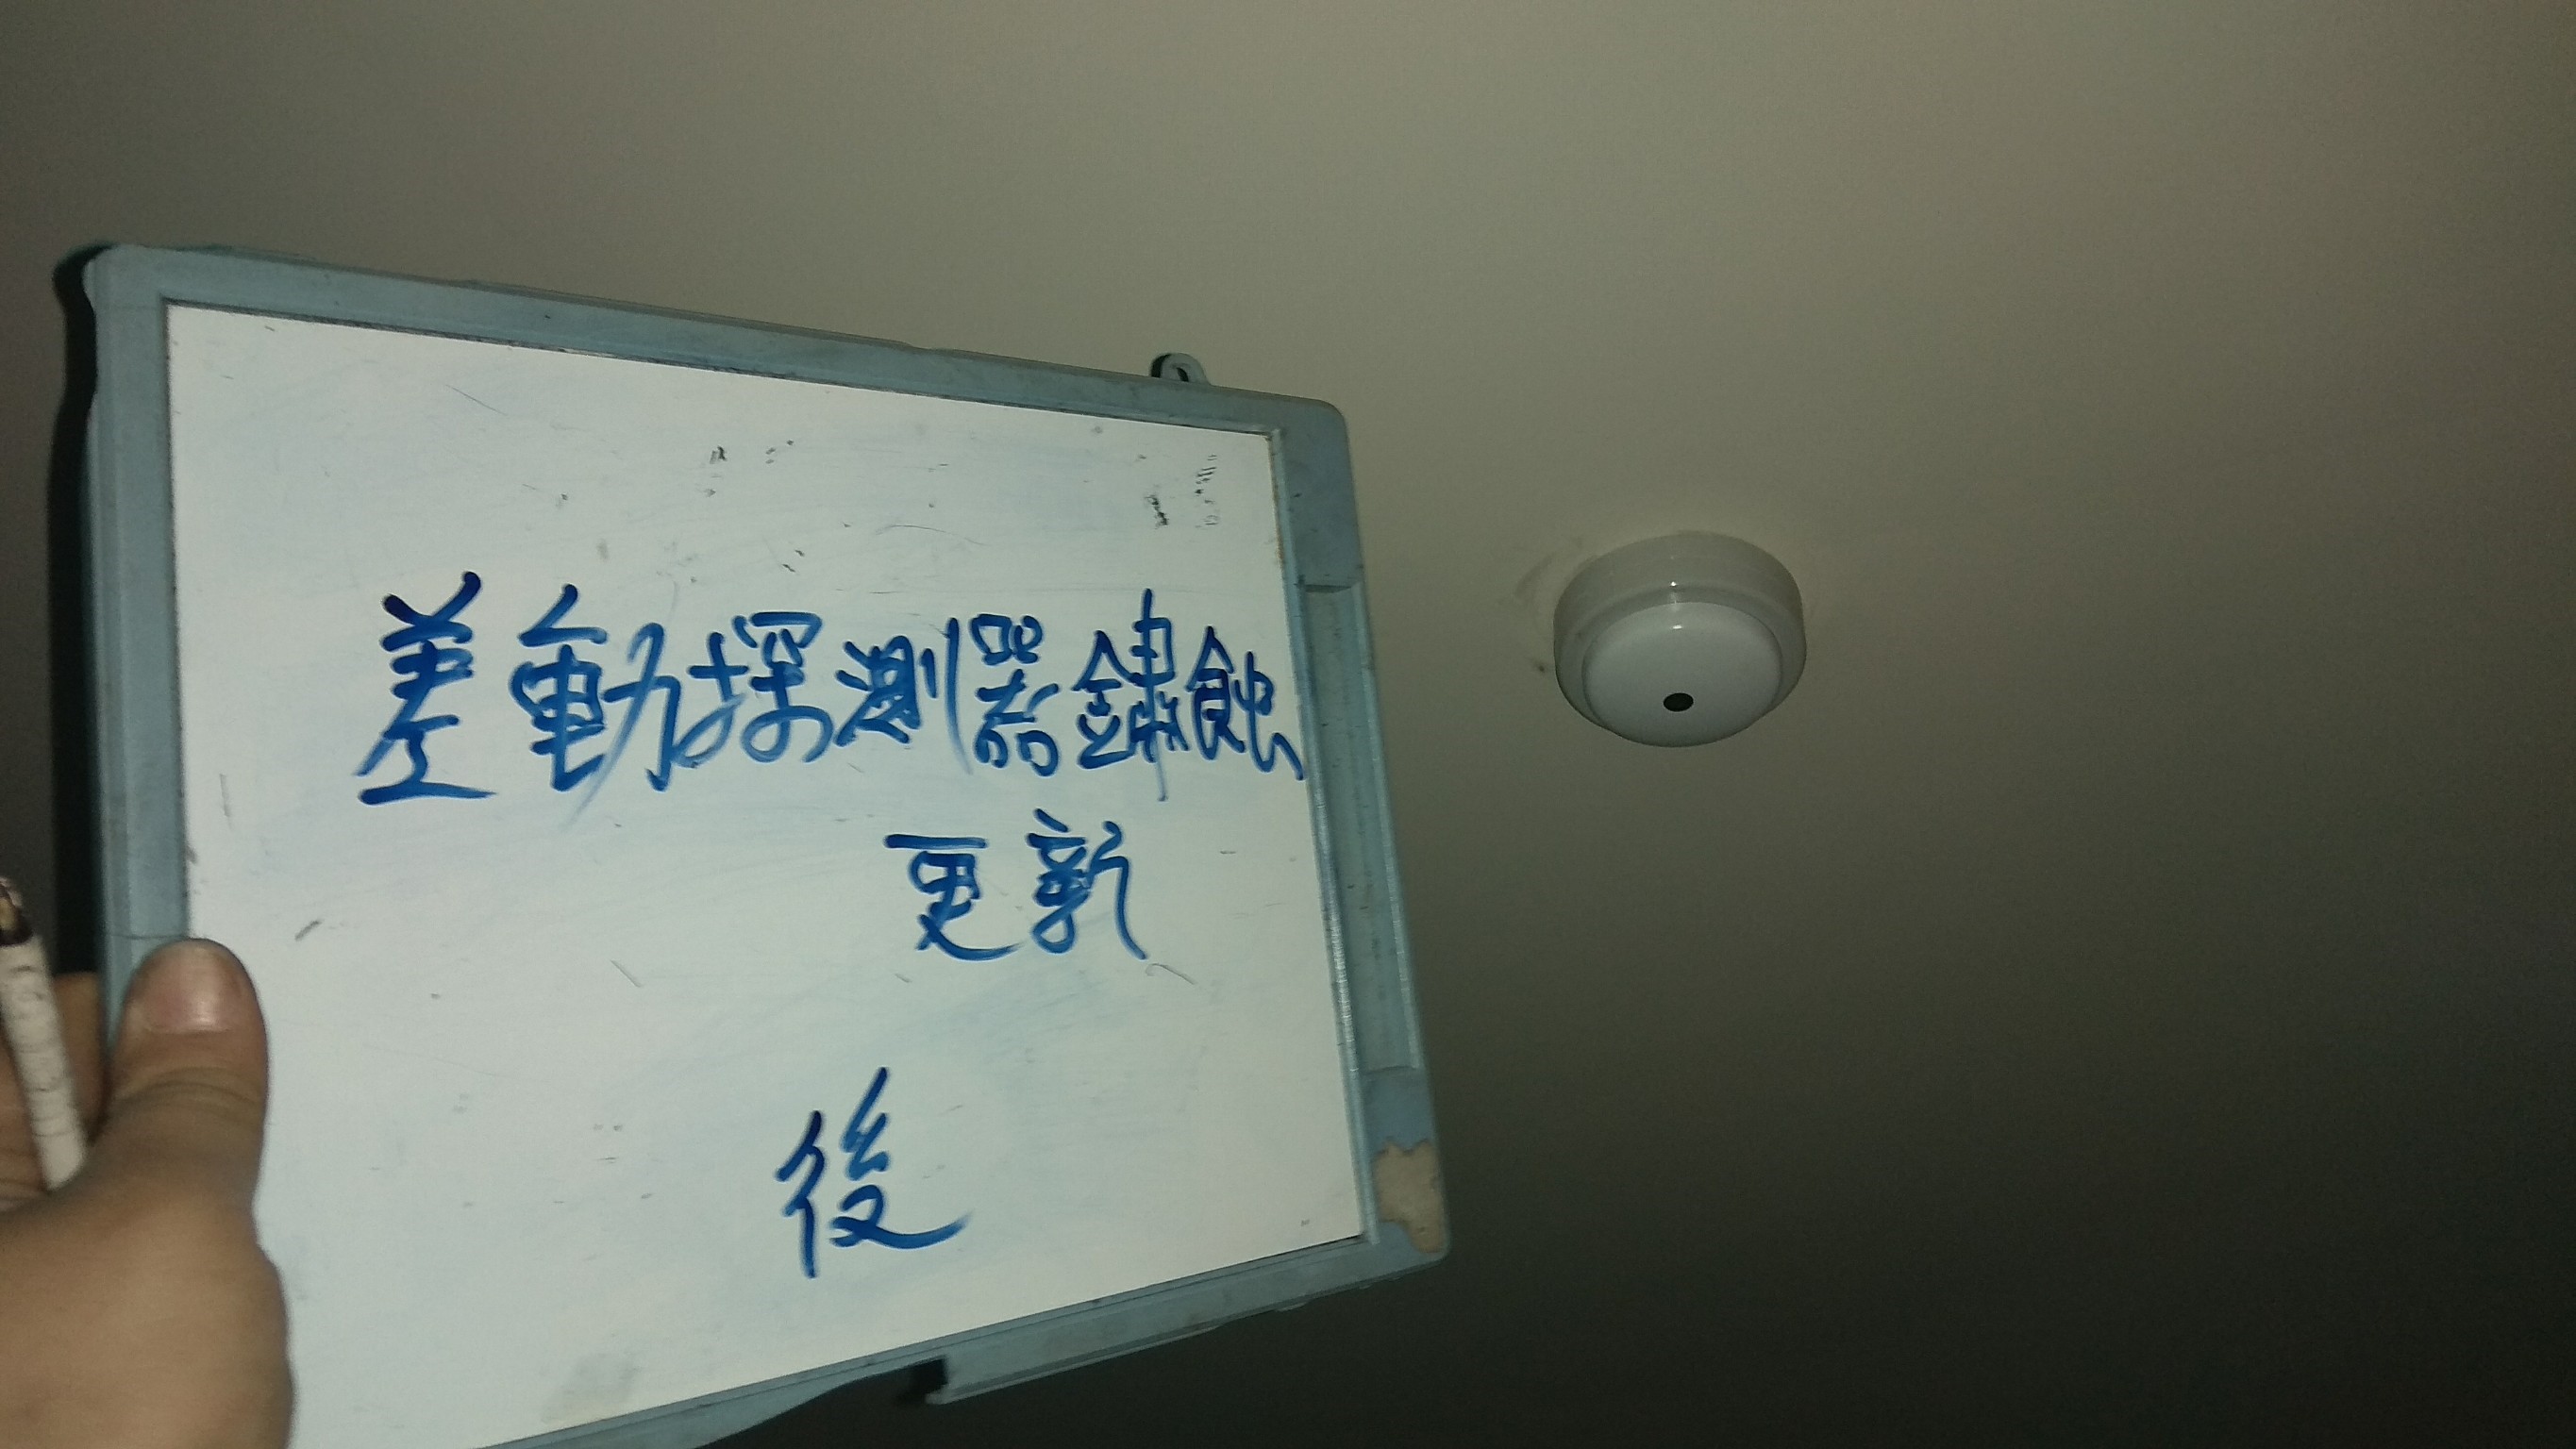 差動探測器鏽蝕
更新
後